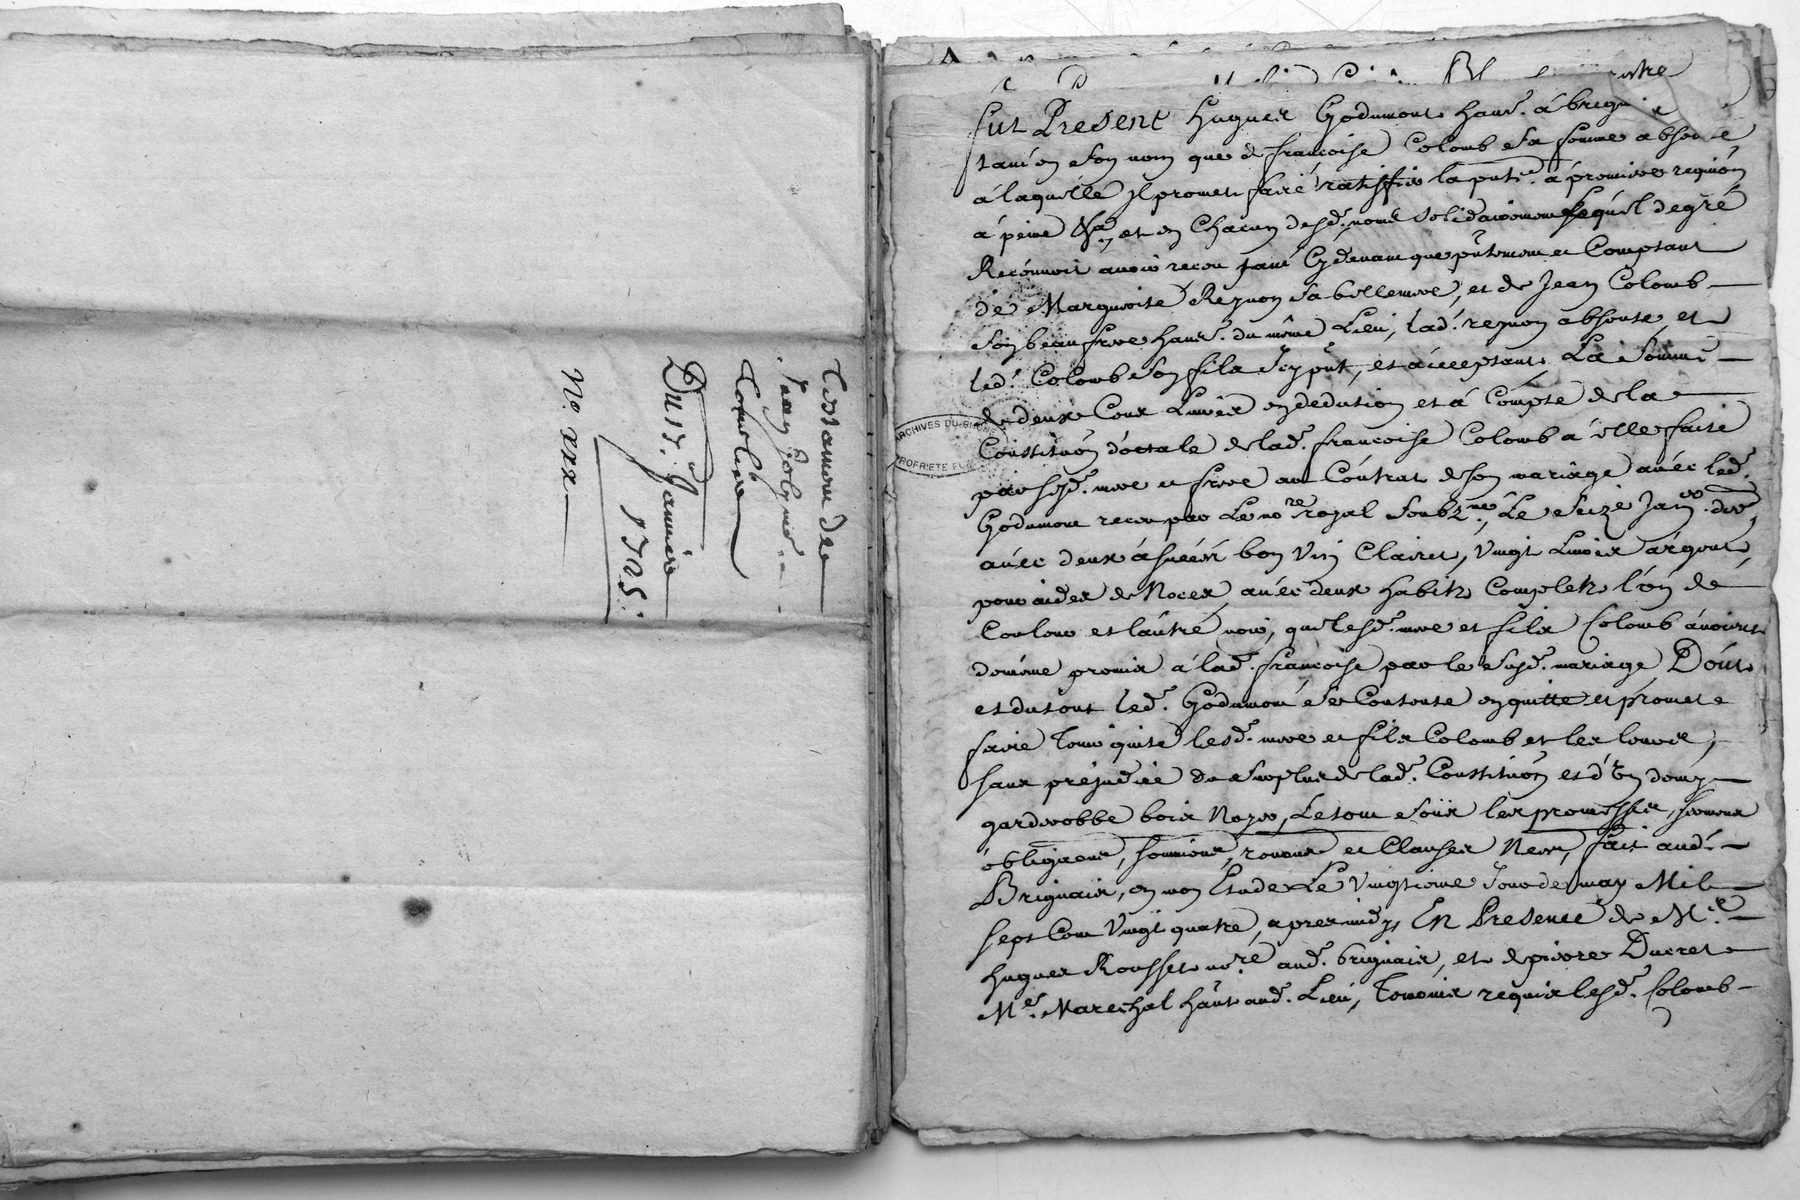 Testament de
Jean
Du 17e Janvier
1725
No. xxx
ARCHIVES DU RHONE
PROPRIETE PUB
fut Present hugues Godumont habt. a brign
tant en son nom que de francoise Colomb sa femme absente,
a laquelle il promet faire ratiffier la pnte. a premiere requion
a peine &a, et en Chacun desd. noms solidairement lequel de gre
Reconnoit avoir receu tant Cydevant que pntement et Comptant
de Marguerite Reynon sa bellemere, et de Jean Colomb
son beaufrere habt. du même Lieu, lad. reynon absente, et
led. Colomb son fils icy pnt, et acceptant, La Somme
de deux Cent Livres en deduction et a Compte de la
Constituon doctale de lad. francoise Colomb a elle faite
par sesd. mere et frere au Contrat de son mariage avec led.
Godumont receu par Le nore royal soubzne, Le seize Janer der,
avec deux asnées bon vin Clairet, vingt Livres argent,
pour aider de Noces, avec deux habits Complets l'un de
Couleur et lautre noir, que lesd. mere et fils Colomb avoient
donéme promis a lad. francoise par le susd. mariage, Dont
et du tout led. Godumont se Contente en quitte et promet
faire tenir quite lesd. mere et fils Colomb et les leurs,
sans prejudice du surplus de lad. Constituon et d'un demy
garderobbe bois Noyer, Le tout sous les promesses, serments
obligaons, soumions, renons et Clauses Neres, fait aud.
Brignais, en mon Etude Le vingtieme Jour de may Mil
sept Cent vingt quatre, apres midy, En Presence de Me
hugues Rousset nore aud. brignais, et de pierre Ducret
Me. Marechal habt. aud. Lieu, temoins requis lesd. Colomb